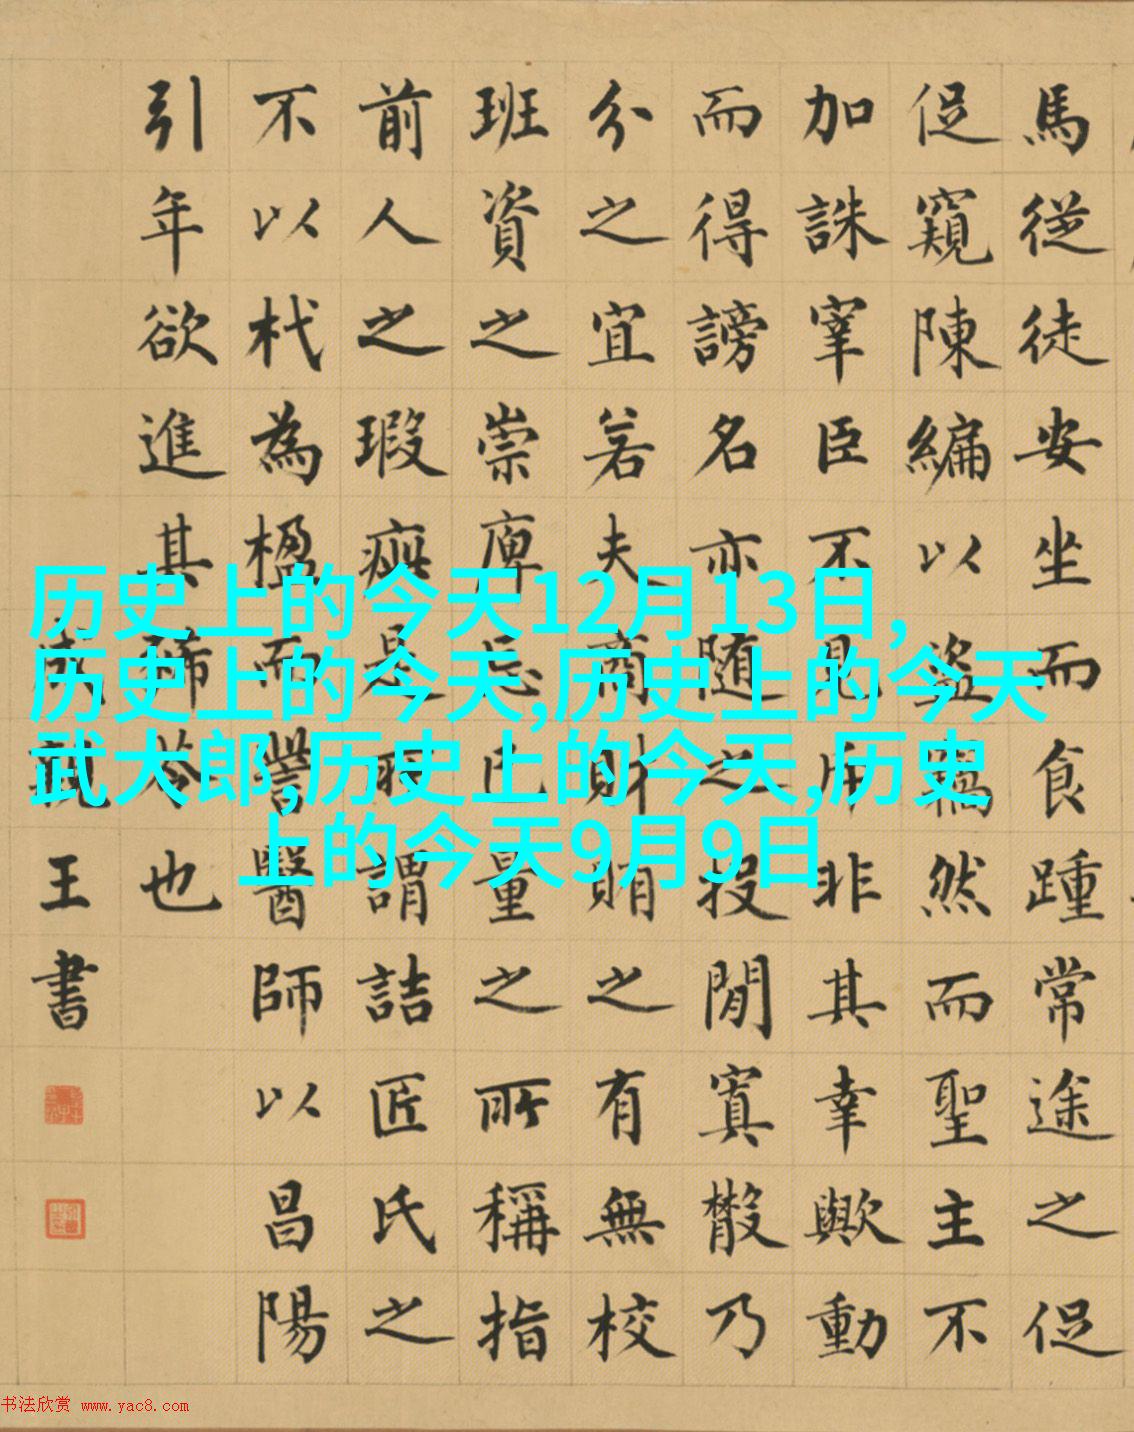 馬從徒安坐而食踵常途之促
促窺陳編以盜竊然而聖主不
加誅宰臣不見斥非其幸歟動
而得謗名亦随之投閒寘散乃
分之宜若夫商財賄之有無校
班資之崇庳忘己量之所稱指
前人之瑕疵是所謂詰匠氏之
不以杙為楹而訾醫師以昌陽
引年欲進其苓也
成親王書
历史上的今天12月13日,
历史上的今天,历史上的今天
武大郎,历史上的今天,历史
上的今天9月9日
书法欣赏 www.yac8.com